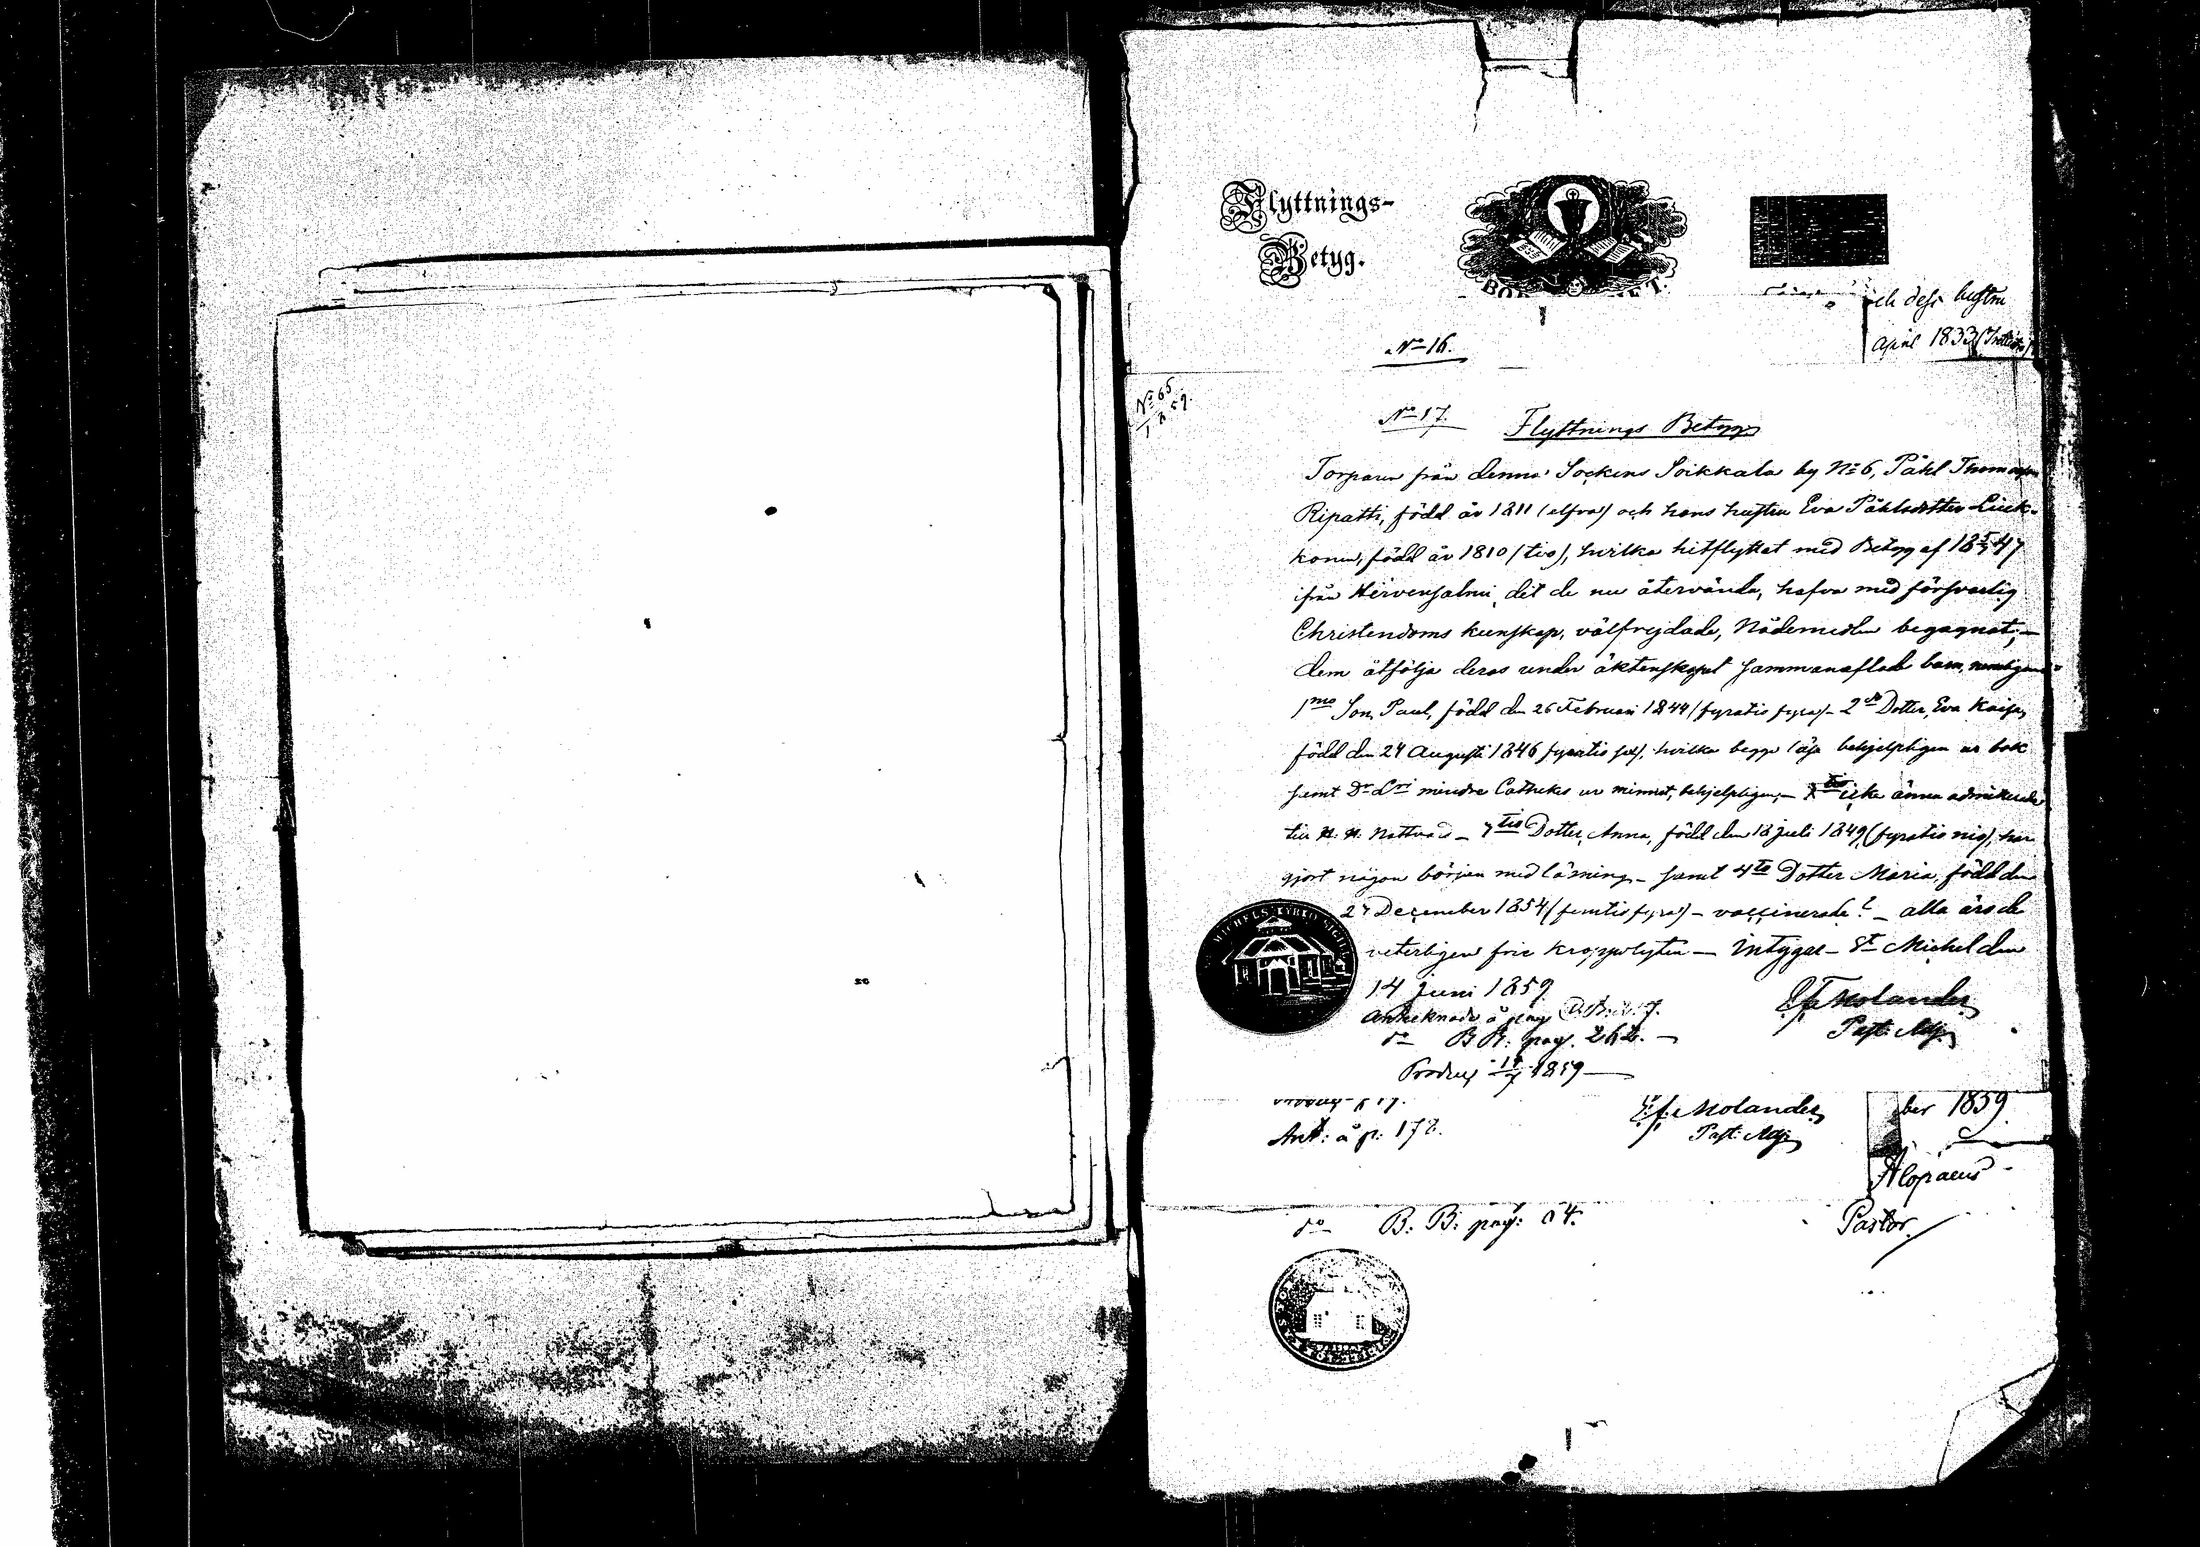 Flyttnings-
Betyg.
och dess hustru
April 1833
No 16.
No 65
1859.
No 17. Flyttnings Betyg
Torparen från denna Sockens Soikkala by No 6, Påhl Thomasson
Ripatti, född år 1811 (elfva) och hans hustru Eva Påhlsdotter Liuk-
konen, född år 1810 (tio), hvilka hitflyttat med Betyg af 18 47
ifrån Hirvensalmi, dit de nu återvända, hafva med försvarlig
Christendoms kunskap, välfrejdade, Nådemedlen begagnat; —
dem åtfölja deras under äktenskapet sammanaflade barn, nemligen
1mo Son, Paul, född den 26 Februari 1844 (fyratio fyra) - 2do Dotter, Eva Kaisa,
född den 24 Augusti 1846 fyratio sex), hvilka begge läsa behjelpligen ur bok
samt Dr Lri mindre Cathekes ur minnet, behjelpligen, — icke ännu admitterade
till H. H. Nattvard - 3tio Dotter, Anna, född den 18 juli 1849, (fyratio nio), har
gjort någon början med läsning - samt 4to Dotter Maria, född den
27 December 1854 (femtio fyra) - vaccinerade? - alla äro de
veterligen frie kroppslyten — Intygar - St Michel den
14 Juni 1859
Molander
Past. Adj.
Anteknade å pag
do B.B. pag.
Produc 1859 —
Ant: å p: 178.
Molander
Past. Adj.
ber 1859.
Alopaeus
Pastor.
do B: B: pag: